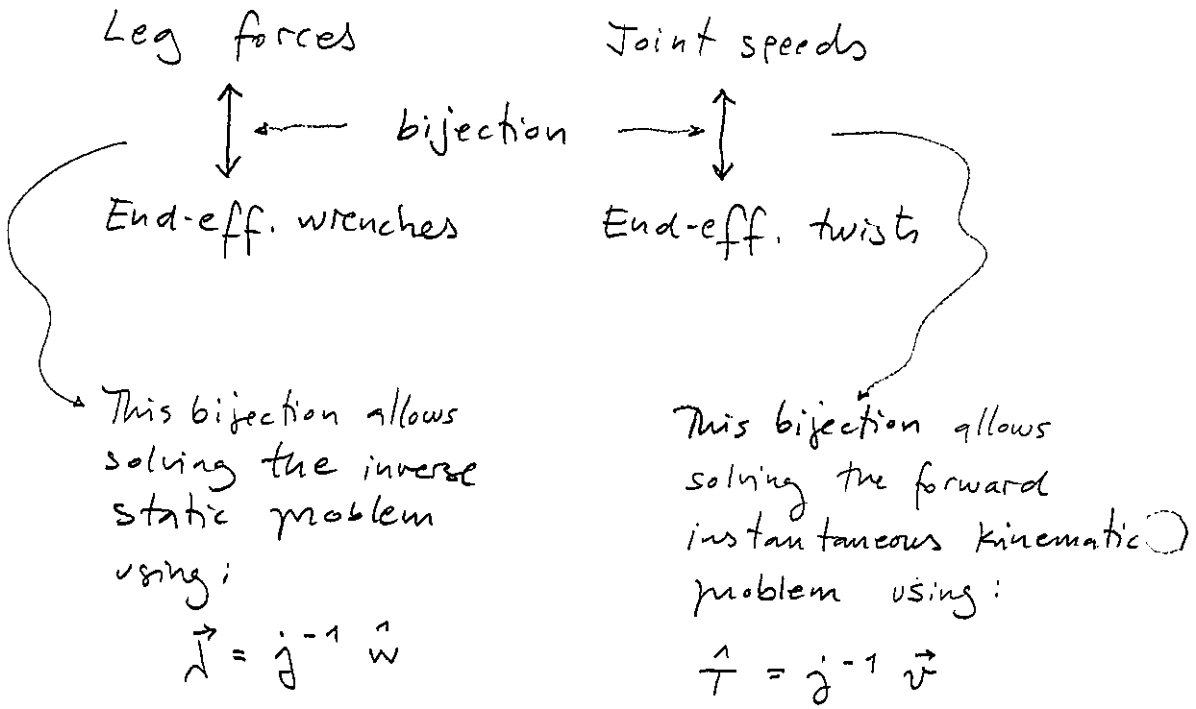 Leg forces
Joint speeds
bijection
End-eff. wrenches
End-eff. twists
This bijection allows
solving the inverse
static problem
using:
λ⃗ = j⁻¹ ŵ
This bijection allows
solving the forward
instantaneous kinematic
problem using:
T̂ = j⁻¹ v⃗